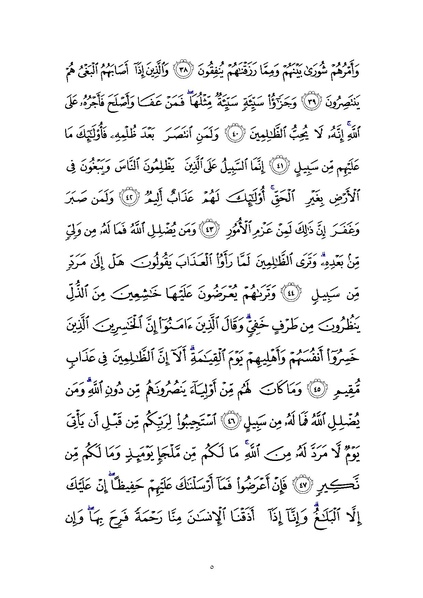 وَأَمْرُهُمْ شُورَىٰ بَيْنَهُمْ وَمِمَّا رَزَقْنَٰهُمْ يُنفِقُونَ ٣٨ وَٱلَّذِينَ إِذَآ أَصَابَهُمُ ٱلْبَغْىُ هُمْ
يَنتَصِرُونَ ٣٩ وَجَزَٰٓؤُا۟ سَيِّئَةٍ سَيِّئَةٌ مِّثْلُهَا ۖ فَمَنْ عَفَا وَأَصْلَحَ فَأَجْرُهُۥ عَلَى
ٱللَّهِ ۚ إِنَّهُۥ لَا يُحِبُّ ٱلظَّٰلِمِينَ ٤٠ وَلَمَنِ ٱنتَصَرَ بَعْدَ ظُلْمِهِۦ فَأُو۟لَٰٓئِكَ مَا
عَلَيْهِم مِّن سَبِيلٍ ٤١ إِنَّمَا ٱلسَّبِيلُ عَلَى ٱلَّذِينَ يَظْلِمُونَ ٱلنَّاسَ وَيَبْغُونَ فِى
ٱلْأَرْضِ بِغَيْرِ ٱلْحَقِّ ۚ أُو۟لَٰٓئِكَ لَهُمْ عَذَابٌ أَلِيمٌ ٤٢ وَلَمَن صَبَرَ
وَغَفَرَ إِنَّ ذَٰلِكَ لَمِنْ عَزْمِ ٱلْأُمُورِ ٤٣ وَمَن يُضْلِلِ ٱللَّهُ فَمَا لَهُۥ مِن وَلِىٍّ
مِّنۢ بَعْدِهِۦ ۗ وَتَرَى ٱلظَّٰلِمِينَ لَمَّا رَأَوُا۟ ٱلْعَذَابَ يَقُولُونَ هَلْ إِلَىٰ مَرَدٍّ
مِّن سَبِيلٍ ٤٤ وَتَرَىٰهُمْ يُعْرَضُونَ عَلَيْهَا خَٰشِعِينَ مِنَ ٱلذُّلِّ
يَنظُرُونَ مِن طَرْفٍ خَفِىٍّ ۗ وَقَالَ ٱلَّذِينَ ءَامَنُوٓا۟ إِنَّ ٱلْخَٰسِرِينَ ٱلَّذِينَ
خَسِرُوٓا۟ أَنفُسَهُمْ وَأَهْلِيهِمْ يَوْمَ ٱلْقِيَٰمَةِ ۗ أَلَآ إِنَّ ٱلظَّٰلِمِينَ فِى عَذَابٍ
مُّقِيمٍ ٤٥ وَمَا كَانَ لَهُم مِّنْ أَوْلِيَآءَ يَنصُرُونَهُم مِّن دُونِ ٱللَّهِ ۗ وَمَن
يُضْلِلِ ٱللَّهُ فَمَا لَهُۥ مِن سَبِيلٍ ٤٦ ٱسْتَجِيبُوا۟ لِرَبِّكُم مِّن قَبْلِ أَن يَأْتِىَ
يَوْمٌ لَّا مَرَدَّ لَهُۥ مِنَ ٱللَّهِ ۚ مَا لَكُم مِّن مَّلْجَإٍ يَوْمَئِذٍ وَمَا لَكُم مِّن
نَّكِيرٍ ٤٧ فَإِنْ أَعْرَضُوا۟ فَمَآ أَرْسَلْنَٰكَ عَلَيْهِمْ حَفِيظًا ۖ إِنْ عَلَيْكَ
إِلَّا ٱلْبَلَٰغُ ۗ وَإِنَّآ إِذَآ أَذَقْنَا ٱلْإِنسَٰنَ مِنَّا رَحْمَةً فَرِحَ بِهَا ۖ وَإِن
٥